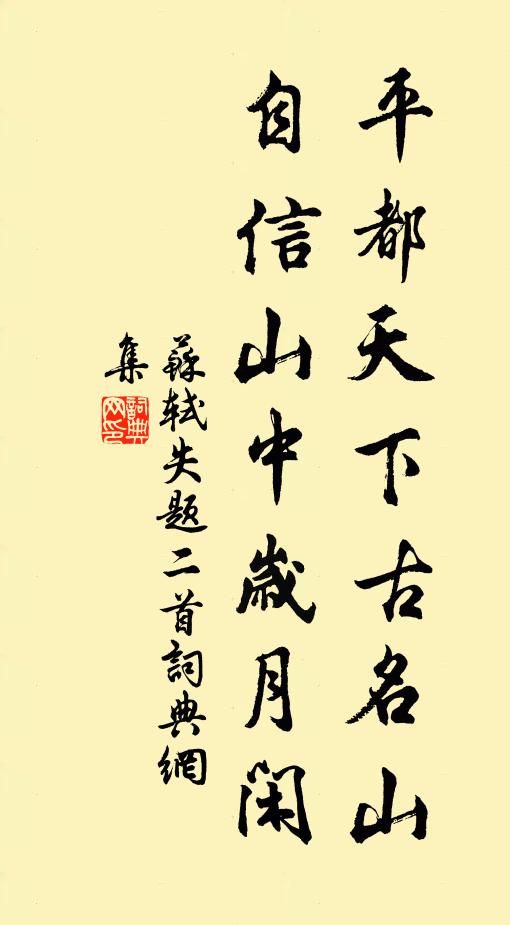 平都天下古名山
自信山中歲月闲
蘇軾失题二首詞典網
集
詞典
网印